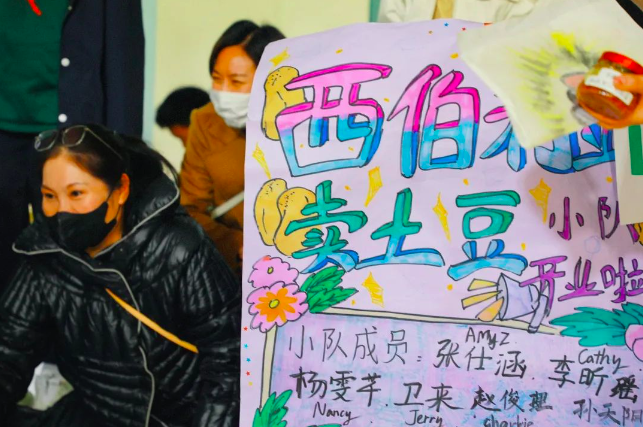 西伯利
卖土豆
小队
开业啦
小队成员: 张仕涵. 李昕
Amyz Cathy
杨雯芊. 卫来 赵俊 孙天阳
Nancy Jerry Charlie